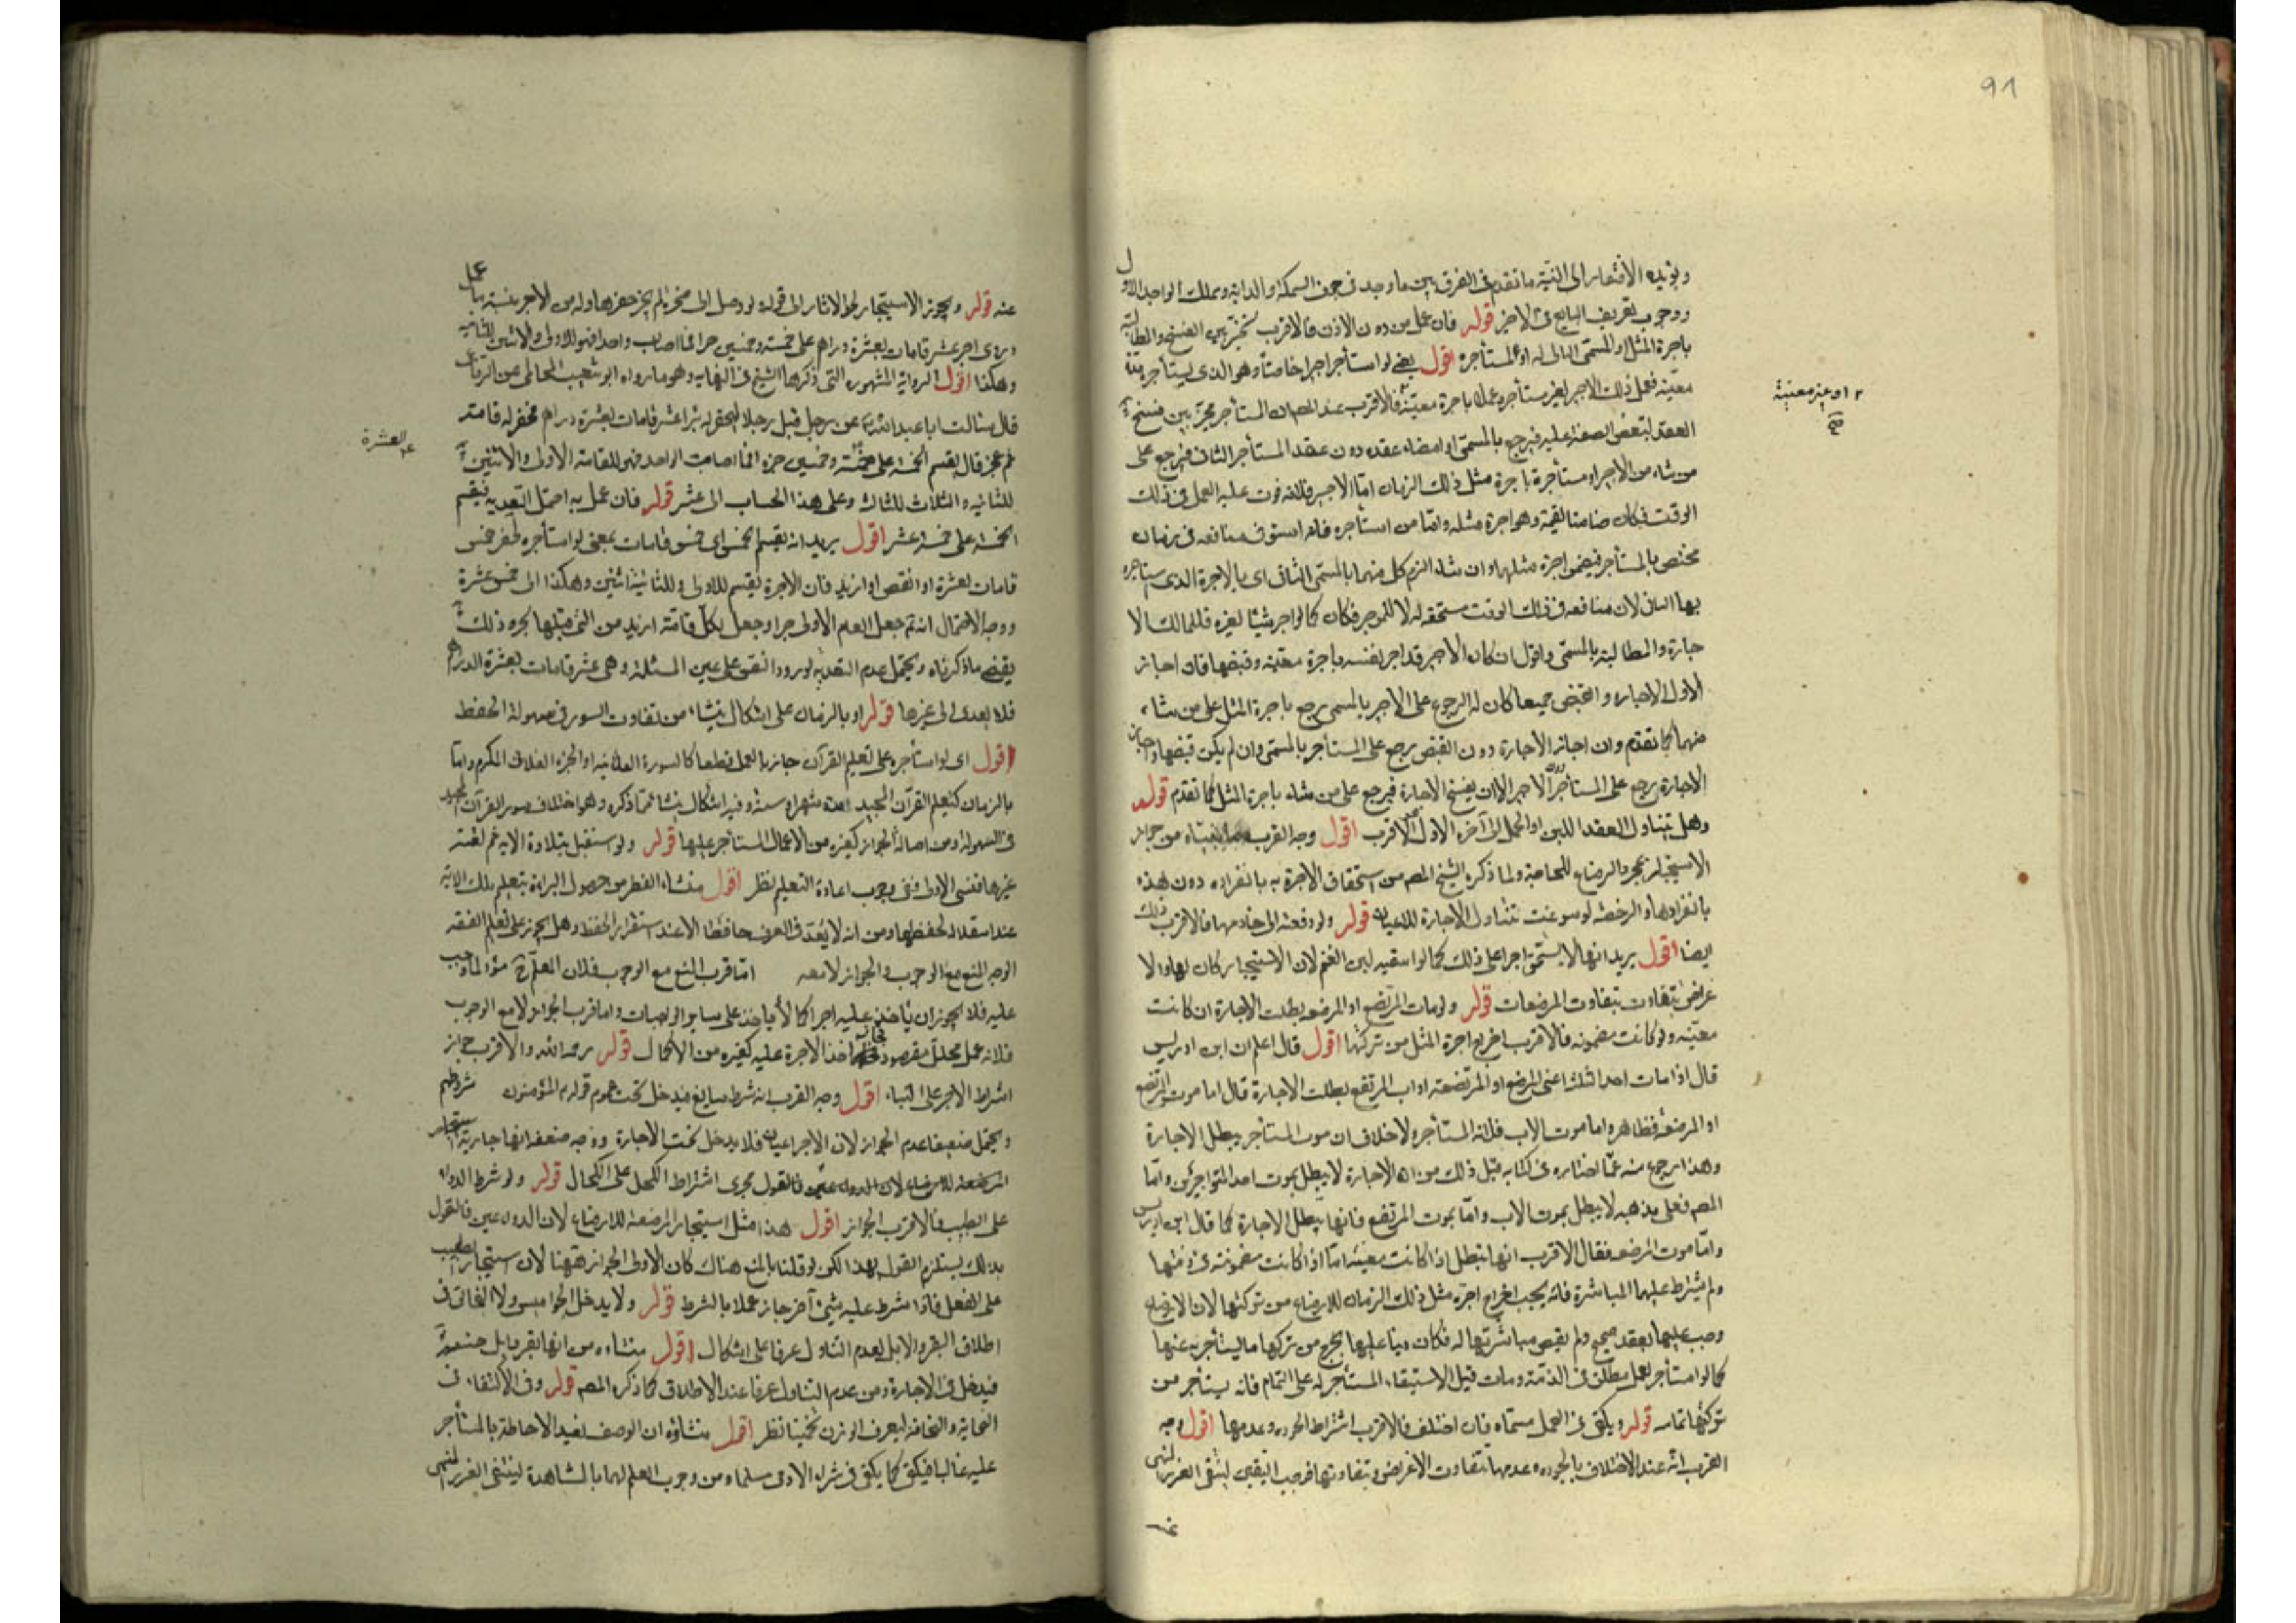 91
ويؤيده الافتقار الى النية ما تقدم فى الفرق بين ما وجد فى جوف السمكة والدابة وتملك الواجد الاول
ووجوب تعريف البايع فى الاخر قوله فان عمل من دون الاذن فالاقرب تخير بين الفسخ والمطالبة
باجرة المثل او المسمى اقول يعنى لو استأجر اجيرا خاصا وهو الذى يستأجر مدة
معينة فعمل ذلك الاجير لغير مستأجره عملا باجرة معينة فالاقرب عند المصـ ان المستأجر مخير بين فسخ
او غير معينة صح
العقد لتبعض الصفقة عليه فيرجع بالمسمى او امضاء عقده دون عقد المستأجر الثانى فيرجع على
من شاء من الاجير او مستأجره باجرة مثل ذلك الزمان اما الاجير فلانه فوت عليه العمل فى ذلك
الوقت فكان ضامنا لقيمة وهو اجرة مثله واما من استأجره فلانه استوفى منافعه فى زمان
مختص بالمستأجر فيضمن اجرة مثلها وان شاء الزم كل منهما بالمسمى الثانى اى بالاجرة الذى استأجره
بها الثانى لان منافعه فى ذلك الوقت مستحقه له لا للموجر فكان كما لو اجر شيئا لغيره فللمالك الا
جازة والمطالبة بالمسمى واقول ان كان الاجير قد اجر نفسه باجرة معينة وقبضها فان اجاز
الاول الاجاره و القبض جميعا كان له الرجوع على الاجير بالمسمى يرجع باجرة المثل على من شاء
منهما كما تقدم وان اجاز الاجارة دون القبض يرجع على المستأجر بالمسمى وان لم يكن قبضها واجاز
الاجارة يرجع على المستأجر دون الاجير الا ان يفسخ الاجارة فيرجع على من شاء باجرة المثل كما تقدم قوله
وهل يتناول العقد اللبن او الحمل الى آخره الاول الاقرب اقول وجه القرب من جواز
الاستيجار بمجرد الرضاع للحاجة ولما ذكره الشيخ المصـ من استحقاق الاجرة به بانفراده دون هذه
بانفرادها والرخصة لو سوغت تتناول الاجارة للاعيان قوله ولو دفعته الى خادمها فالاقرب ذلك
ايضا اقول يريد انها لا يستحق اجرا على ذلك كما لو اسقيه لبن الغنم لان الاستيجار كان لها والا
غراض تتفاوت بتفاوت المرضعات قوله ولو مات المرتضع او المرضعه بطلت الاجارة ان كانت
معينه ولو كانت مضمونه فالاقرب اخراج اجرة المثل من تركتها اقول قال اعلم ان ابن ادريس
قال اذا مات احد الثلثة اعنى المرضع او المرتضعة او اب المرتضع بطلت الاجارة قال اما موت المرتضع
او المرضعة فظاهره اما موت الاب فلانه المستأجر ولا خلاف ان موت المستأجر يبطل الاجارة
وهذا رجوع منه عما اختاره فى كتابه قبل ذلك من ان الاجارة لا يبطل بموت احد المتواجرين واما
المصـ فعلى مذهبه لا يبطل بموت الاب واما بموت المرتضع فانها يبطل الاجارة كما قال ابن ادريس
واما موت المرضعه فقال الاقرب انها تبطل اذا كانت معينة اما اذا كانت مضمونه فى ذمتها
ولم يشترط عليها المباشرة فانه يجب اخراج اجرة مثل ذلك الزمان للارضاع من تركتها لان الارضاع
وجب عليها بعقد صحيح ولم يقيض مباشرتها له فكان دينا عليها يخرج من تركتها ما يستأجر به عنها
كما لو استأجر لعمل مطلق فى الذمة ومات قبل الاستيفاء المستأجر له على التمام فانه يستأجر من
تركته تمامه قوله ويكفى فى العمل مسماه فان اختلف فالاقرب اشتراط الجوده وعدمها اقول وجه
القرب انه عند الاختلاف بالجوده وعدمها تتفاوت الاغراض بتفاوتها فوجب التعيين لينتفى الغرر المنهى
عنه
عنه قوله ويجوز الاستيجار لحفر الابار الى قوله لو وصل الى صخر لم يجز حفرها وله من الاجر بنسبة ما عمل
وروى اجر عشر قامات بعشرة دراهم على خمسة وخمسين جزا فما اصاب واحدا فهو للاولى والاثنين للثانية
وهكذا اقول الرواية المشهورة التى ذكرها الشيخ فى النهاية وهو ما رواه ابو شعيب المحاملى عن الرفاعى
قال سئالت ابا عبد الله ع عن رجل قبل رجلا ليحفر له بئرا عشر قامات بعشرة دراهم فحفر له قامة
العشرة
ثم عجز قال يقسم الخمسة على خمسة وخمسين جزء افما اصابت الواحد فهو للقامة الاولى والاثنين
للثانيه والثلاث للثالثة وعلى هذا الحساب الى عشر قوله فان عمل به احتمل التعديه فيقسم
الخمسة على خمسة عشر اقول يريد انه يقسم الخمس اى خمس قامات بمعنى لو استأجره لحفر خمس
قامات بعشرة او انقص او ازيد فان الاجرة يقسم للاولى وللثانية اثنين وهكذا الى خمس عشرة
ووجه الاحتمال انه تم جعل العلم الاولى جزا وجعل لكل قامة ازيد من التى قبلها بجزء وذلك
يقتضى ما ذكرناه ويحتمل عدم التعديه لورود النص على عين المسئلة وهى عشر قامات بعشرة الدراهم
فلا يعدى الى غيرها قوله او بالزمان على اشكال ينشأ من تفاوت السور فى سهولة الحفظ
اقول اى لو استأجره على تعليم القرآن جاز بالعمل قطعا كالسورة الفلانيه او الجزء الفلانى المكرم واما
بالزمان كتعليم القرآن المجيد مدة شهر او سنة وفيه اشكال ينشأ مما ذكره وهو اختلاف سور القرآن المجيد
فى السهولة ومن اصالة الجواز كغيره من الاعمال المستأجر عليها قوله ولو استقل بتلاوة الايه ثم لقنه
غيرها فنسى الاولى ففى وجوب اعادة التعليم نظر اقول منشاء النظر من حصول البراءة بتعليم تلك الاية
عند استقلاله لحفظها ومن انه لا يعد فى العرف حافظا الا عند استقرار الحفظ وهل يجوز على تعلم الفقه
الوجه المنع مع الوجوب والجواز لا معه اما قرب المنع مع الوجوب فلان المعلم مؤد لما وجب
عليه فلا يجوز ان يأخذ عليه اجرا كما لا يأخذ على ساير الواجبات واما قرب الجواز لا مع الوجوب
فلانه عمل محلل مقصود فجاز اخذ الاجرة عليه كغيره من الاعمال قوله رحمه الله والاقرب جواز
اشتراط الاجر على البناء اقول وجه القرب انه شرط سايغ فيدخل تحت عموم قوله م المؤمنون عند شروطهم
ويحتمل ضعيفا عدم الجواز لان الاجر اعيان فلا يدخل تحت الاجارة ووجه ضعفه انها جارية استيجار
المرضعة للارضاع لان الدواء عين فالقول مجرى اشتراط الكحل على الكحال قوله ولو شرط الدواء
على الطبيب فالاقرب الجواز اقول هذا مثل استيجار المرضعة للارضاع لان الدواء عين فالقول
بذلك يستلزم القول بهذا لكن لو قلنا بالمنع هناك كان الاولى الجواز ههنا لان استيجار الطبيب
على الفعل فاذا شرط عليه شىء آخر جاز عملا بالشرط قوله ولا يدخل الجواميس ولا البخاتى فى
اطلاق البقر والابل لعدم التناول عرفا على اشكال اقول منشاءه من انها بقر وابل حقيقة
فيدخل فى الاجارة ومن عدم التناول عرفا عند الاطلاق كما ذكره المصـ قوله وفى الاكتفاء فى
النحاية والنحافة ليعرف الوزن تخمينا نظر اقول منشاؤه ان الوصف يفيد الاحاطة بالمستأجر
عليه غالبا فيكفى كما يكفى فى شراء الادمى سلما ومن وجوب العلم لها بالمشاهدة لينتفى الغرر المنهى